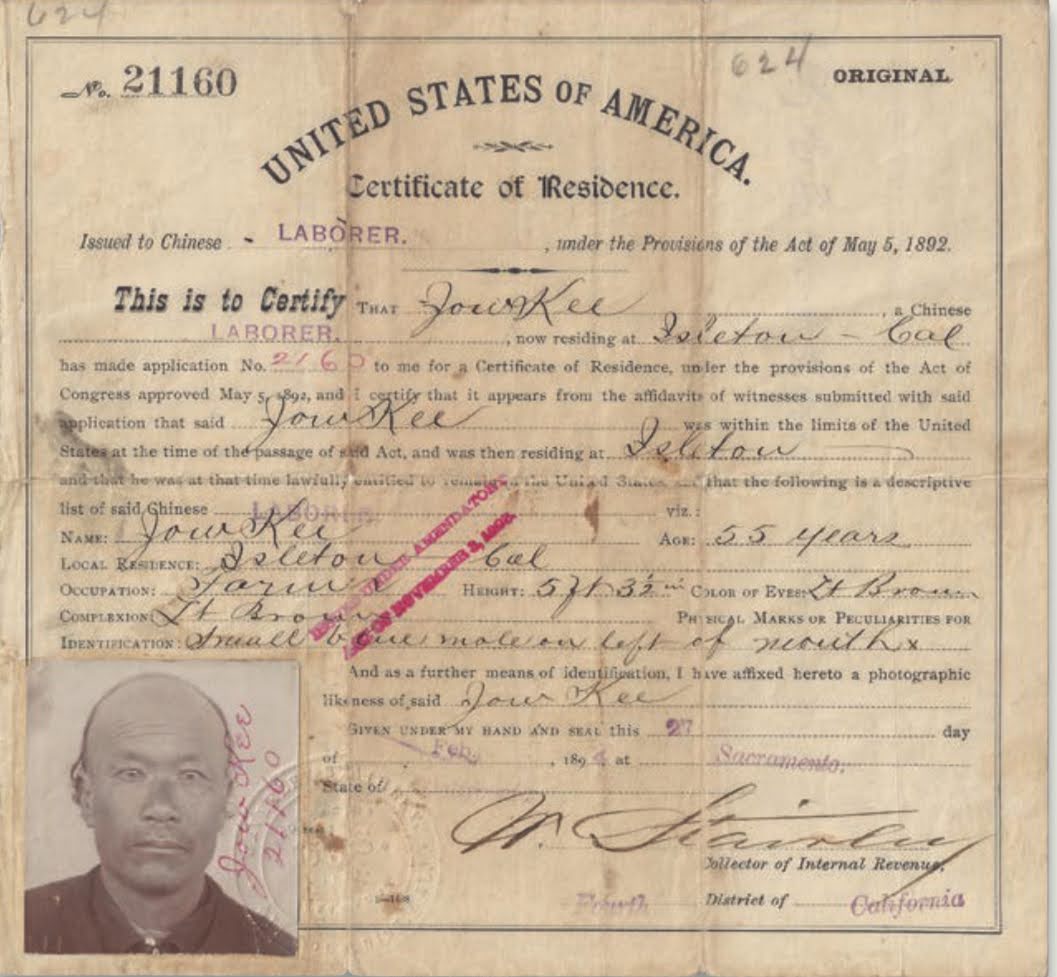 624
624
No. 21160
ORIGINAL.
UNITED STATES OF AMERICA.
Certificate of Residence.
Issued to Chinese LABORER. , under the Provisions of the Act of May 5, 1892.
This is to Certify THAT Jow Kee , a Chinese
LABORER. , now residing at Isleton - Cal
has made application No. 2160 to me for a Certificate of Residence, under the provisions of the Act of
Congress approved May 5, 1892, and I certify that it appears from the affidavits of witnesses submitted with said
application that said Jow Kee was within the limits of the United
States at the time of the passage of said Act, and was then residing at Isleton
and that he was at that time lawfully entitled to remain in the United States, and that the following is a descriptive
list of said Chinese LABORER viz.:
NAME: Jow Kee AGE: 55 years
LOCAL RESIDENCE: Isleton Cal
OCCUPATION: Farmer HEIGHT: 5 ft 3½ in COLOR OF EYES: Lt Brown
COMPLEXION: Lt Brown PHYSICAL MARKS OR PECULIARITIES FOR
IDENTIFICATION: Small blue mole on left of mouth x
ISSUED UNDER AMENDATORY
ACT OF NOVEMBER 3, 1893.
And as a further means of identification, I have affixed hereto a photographic
likeness of said Jow Kee
GIVEN UNDER MY HAND AND SEAL this 27 day
of Feby , 1894 at Sacramento.
State of
W. Shairley
Collector of Internal Revenue,
Fourth District of California
Jow Kee
21160